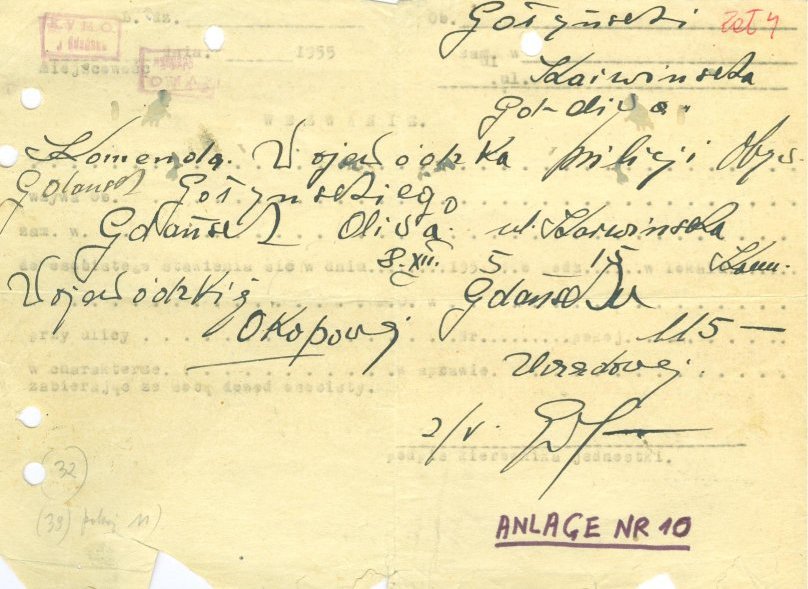 L. dz. Ob. Gołyński Zał 4
K.W.M.O.
w Gdańsku
dnia 1955 zam. w
Miejscowość ul. Karwińska
Gd-Oliwa.
WEZWANIE.
Komenda Wojewódzka Milicji Obyw.
Gdańsk Gołyńskiego
wzywa Ob.
zam. w. Gdańsk Oliwa ul. Karwińska
do osobistego stawienia się w dniu 8.XII. 195 5 o godz. 15 w lokalu Kom.
Wojewódzkiej Gdańsku
przy ulicy Okopowej Nr. pokój 115 —
w charakterze w sprawie Urzędowej
zabierając ze sobą dowód osobisty.
podpis kierownika jednostki.
(32)
(38) pokój
ANLAGE NR 10